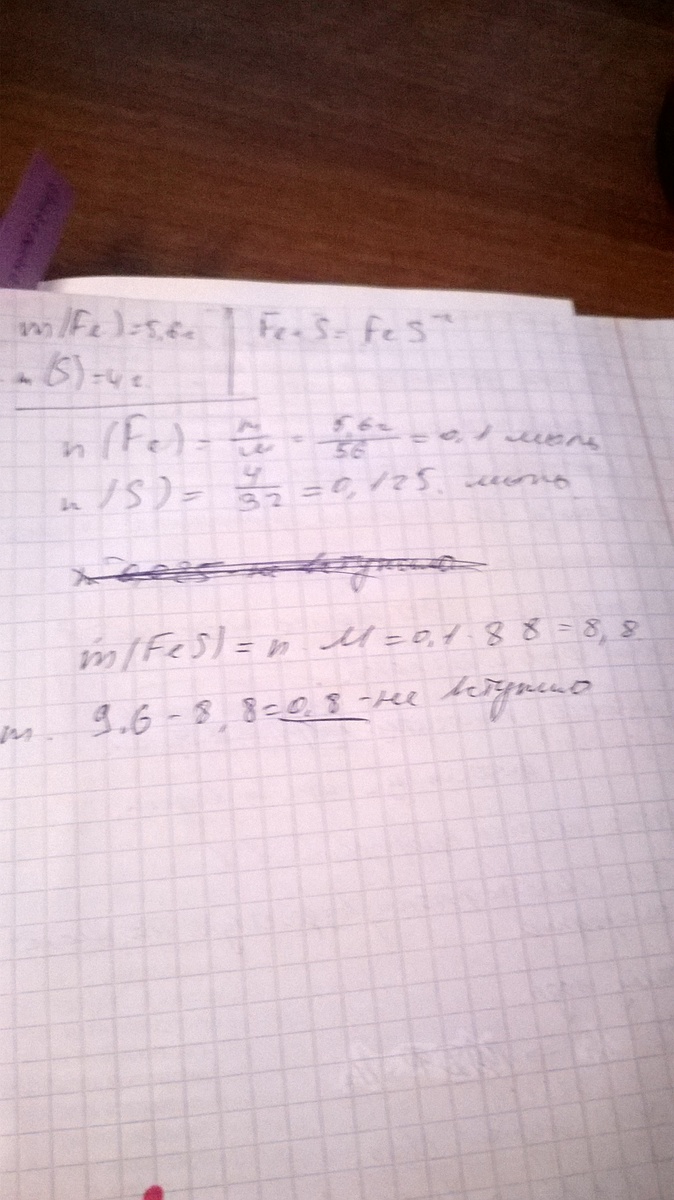 m(Fe)=5,6г | Fe+S=FeS
m(S)=4г
n(Fe)=m/M=5,6г/56=0,1 моль
n(S)=4/32=0,125. моль
m(FeS)=n·M=0,1·88=8,8
m. 9.6-8,8=0,8-не вступило